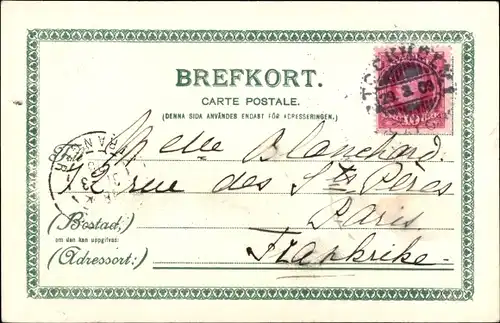 BREFKORT.
CARTE POSTALE.
(DENNA SIDA ANVÄNDES ENDAST FÖR ADRESSERINGEN.)
STOCKHOLM
10
Melle Blanchard.
72 rue des Sts Pères
(Bostad;)
om den kan uppgifvas:
Paris
(Adressort:)
Frankrike.